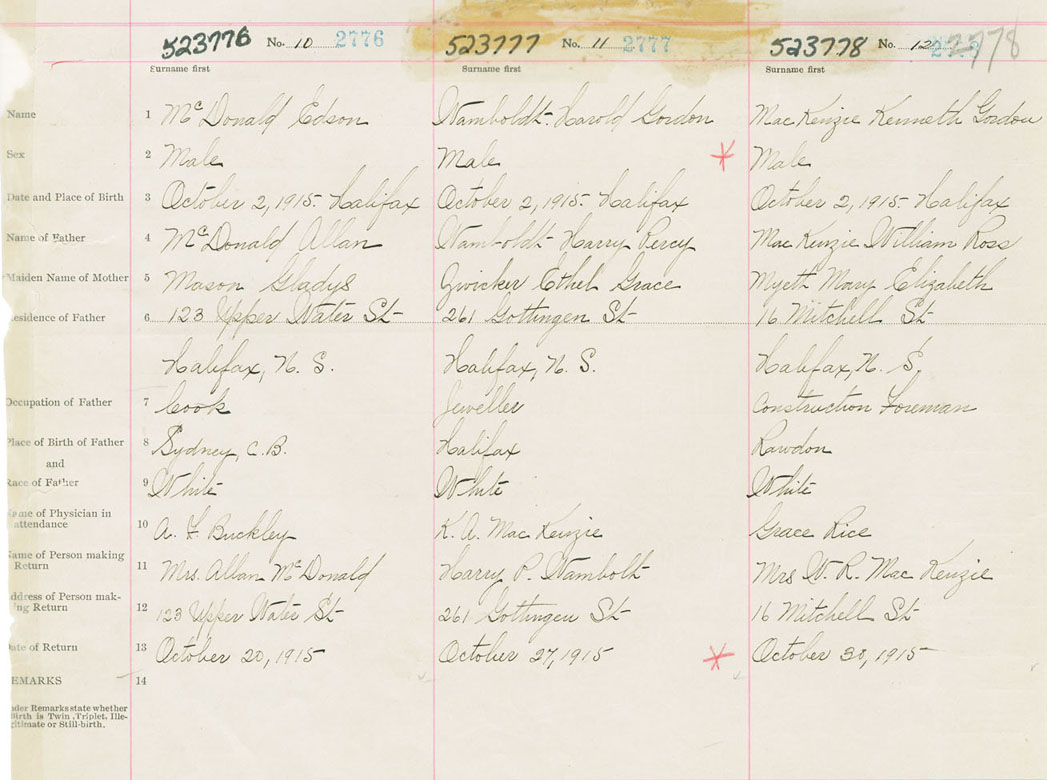 523776 No. 10 2776 523777 No. 11 2777 523778 No. 12 2778
Surname first Surname first Surname first
Name 1 McDonald Edson Wamboldt. Harold Gordon Mac Kenzie Kenneth Gordon
Sex 2 Male Male Male
Date and Place of Birth 3 October 2, 1915. Halifax October 2, 1915. Halifax October 2, 1915. Halifax
Name of Father 4 McDonald Allan Wamboldt Harry Percy Mac Kenzie William Ross
Maiden Name of Mother 5 Mason Gladys Zwicker Ethel Grace Myett Mary Elizabeth
esidence of Father 6 123 Upper Water St 261 Gottingen St 16 Mitchell St
Halifax, N. S. Halifax, N. S. Halifax, N. S.
Occupation of Father 7 Cook Jeweller Construction Foreman
Place of Birth of Father 8 Sydney, C.B. Halifax Rawdon
and
Race of Father 9 White White White
ame of Physician in
attendance 10 A. F Buckley K. A. Mac Kenzie Grace Rice
Name of Person making
Return 11 Mrs. Allan McDonald Harry P. Wambolt Mrs W. R. Mac Kenzie
ddress of Person mak-
ing Return 12 123 Upper Water St 261 Gottingen St 16 Mitchell St
ate of Return 13 October 20, 1915 October 27, 1915 October 30, 1915
EMARKS 14
der Remarks state whether
Birth is Twin, Triplet, Ille-
gitimate or Still-birth.